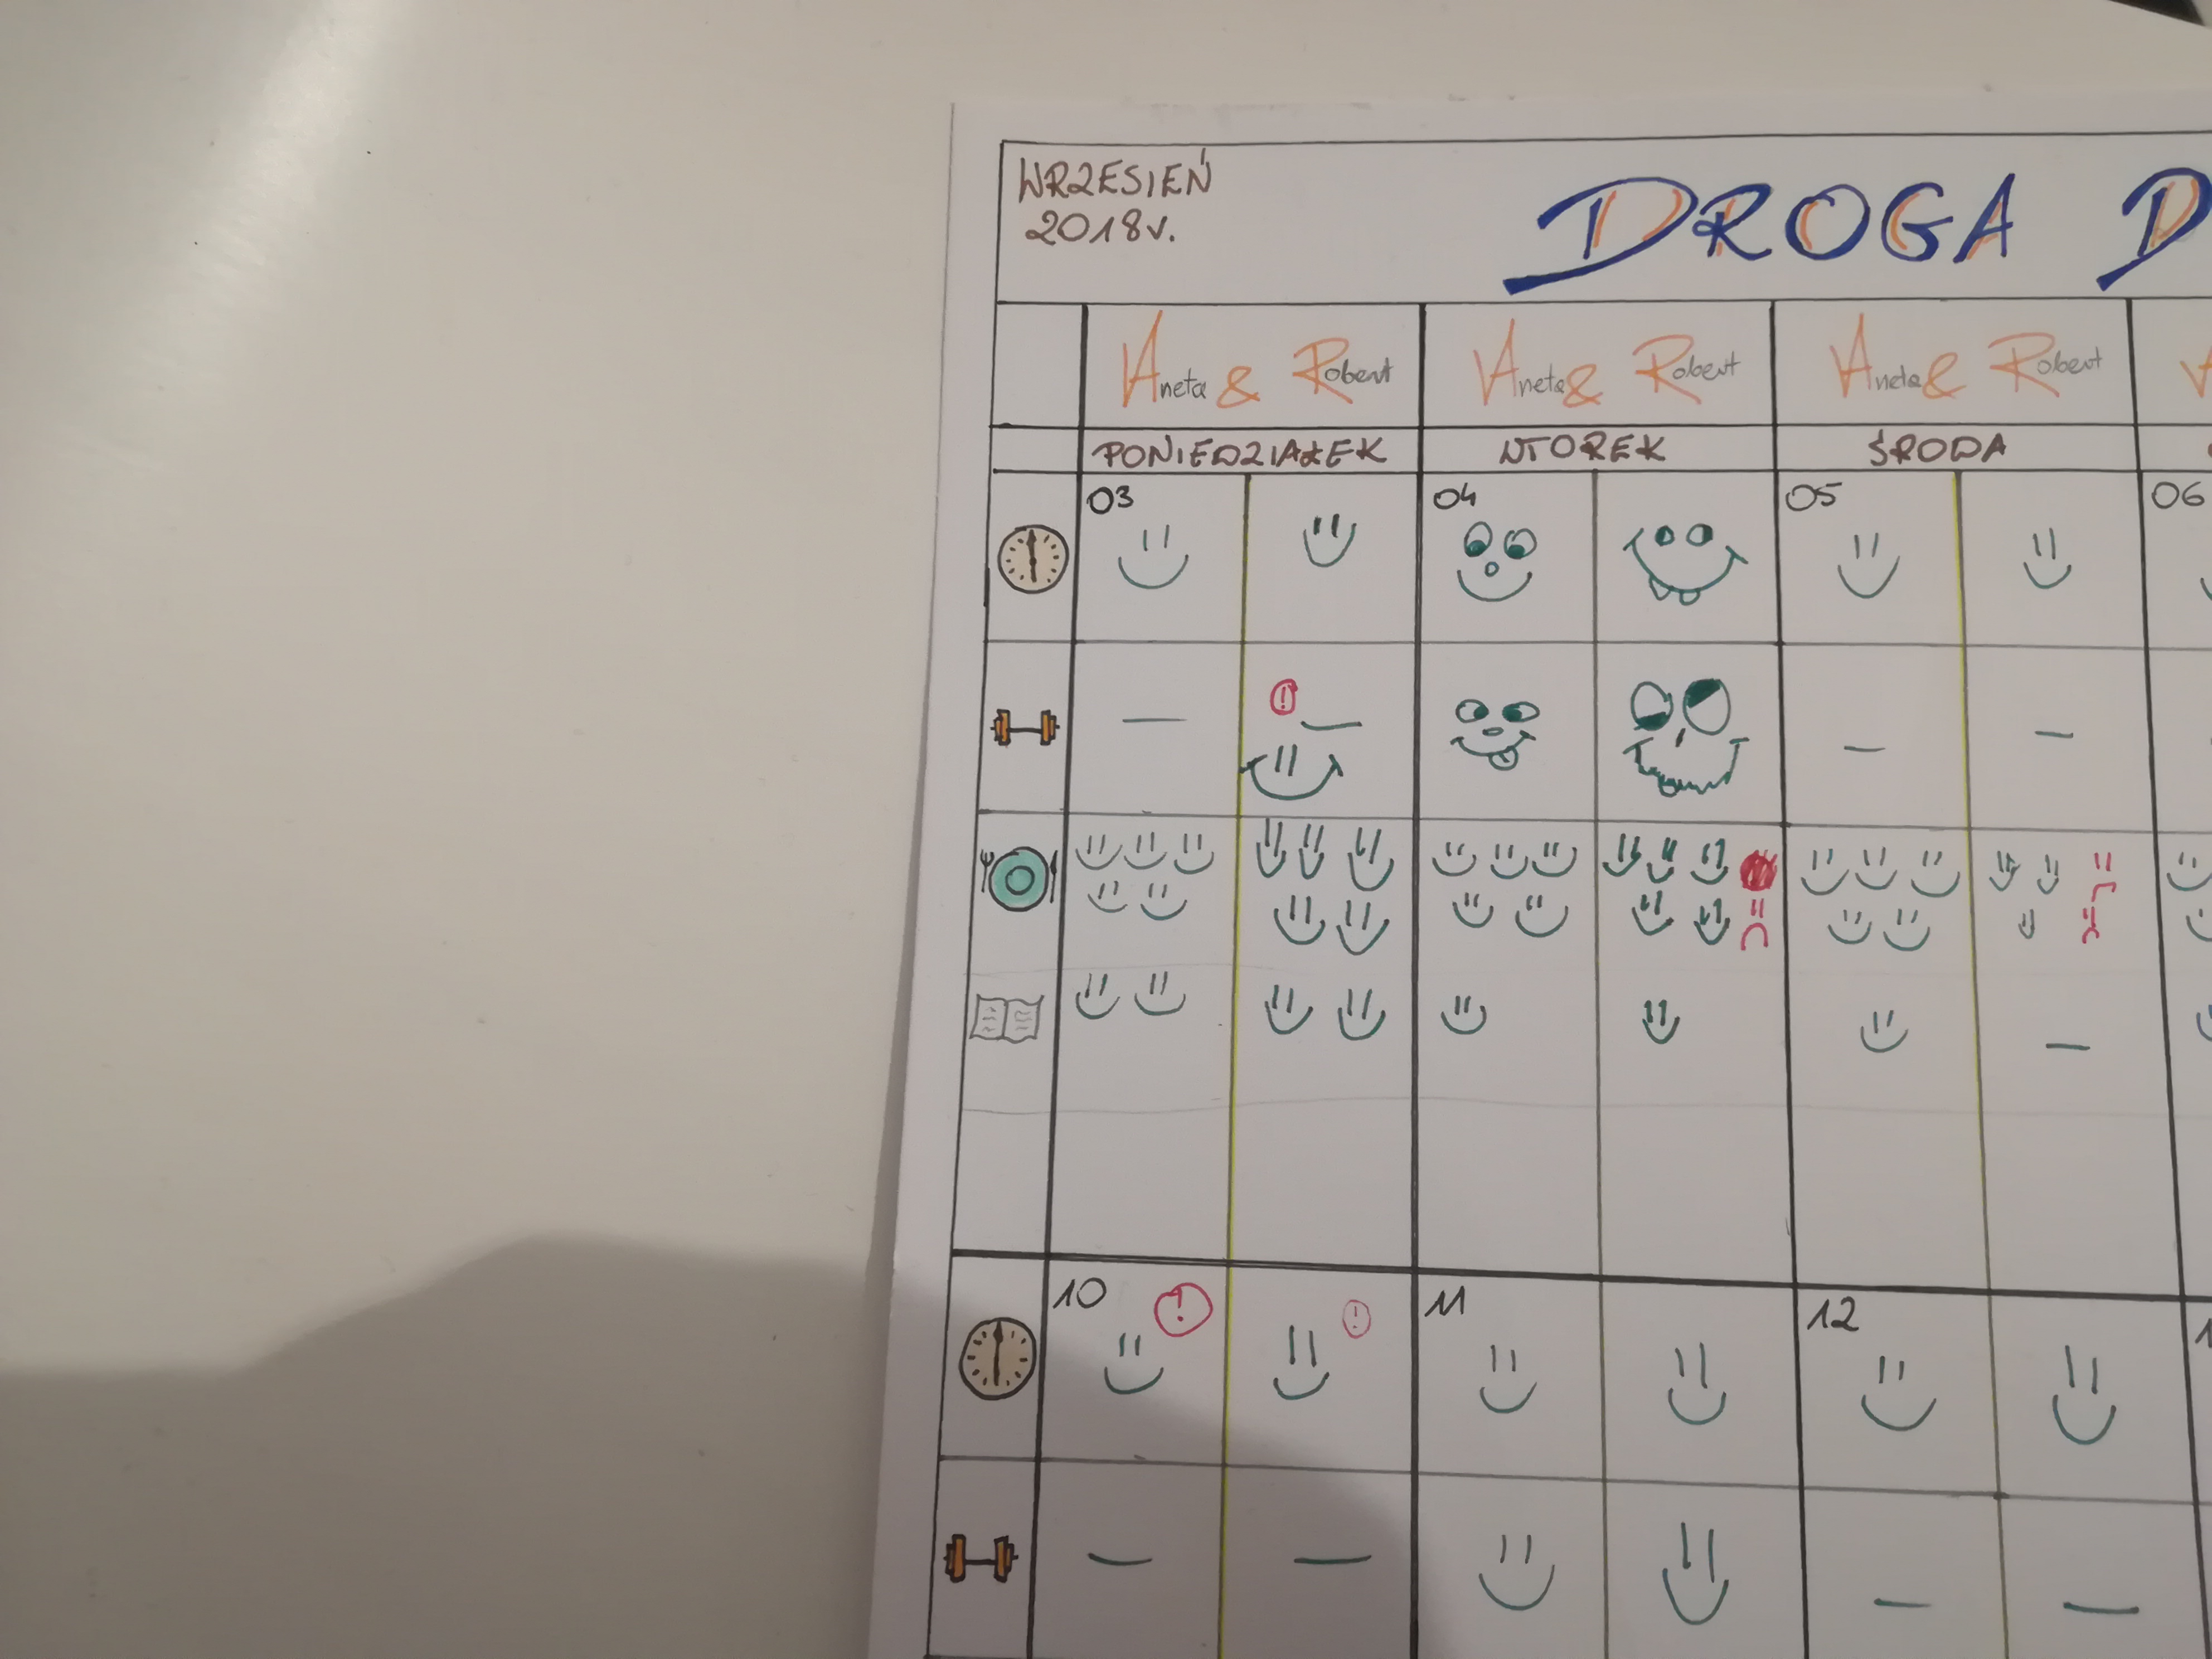 WRZESIEŃ
2018r.
DROGA D
Aneta & Robert Aneta & Robert Aneta & Robert
PONIEDZIAŁEK WTOREK ŚRODA
03 04 05 06
10 ! ! 11 12